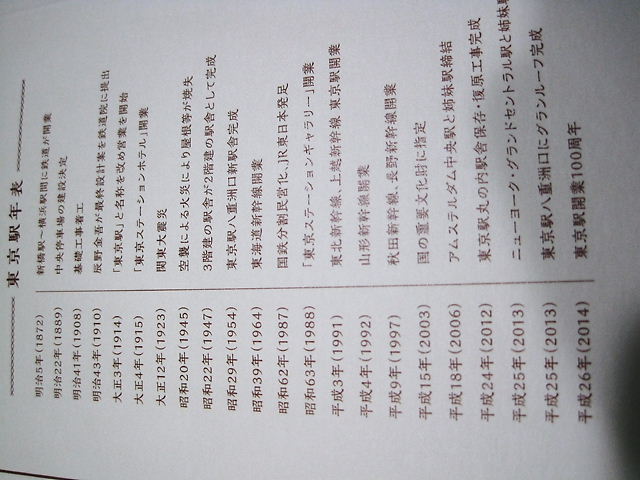 東京駅年表
明治5年(1872) 新橋駅-横浜駅間に鉄道が開業
明治22年(1889) 中央停車場の建設決定
明治41年(1908) 基礎工事着工
明治43年(1910) 辰野金吾が最終設計案を鉄道院に提出
大正3年(1914) 「東京駅」と名称を改め営業を開始
大正4年(1915) 「東京ステーションホテル」開業
大正12年(1923) 関東大震災
昭和20年(1945) 空襲による火災により屋根等が焼失
昭和22年(1947) 3階建の駅舎が2階建の駅舎として完成
昭和29年(1954) 東京駅八重洲口新駅舎完成
昭和39年(1964) 東海道新幹線開業
昭和62年(1987) 国鉄分割民営化、JR東日本発足
昭和63年(1988) 「東京ステーションギャラリー」開業
平成3年(1991) 東北新幹線、上越新幹線 東京駅開業
平成4年(1992) 山形新幹線開業
平成9年(1997) 秋田新幹線、長野新幹線開業
平成15年(2003) 国の重要文化財に指定
平成18年(2006) アムステルダム中央駅と姉妹駅締結
平成24年(2012) 東京駅丸の内駅舎保存・復原工事完成
平成25年(2013) ニューヨーク・グランドセントラル駅と姉妹
平成25年(2013) 東京駅八重洲口にグランルーフ完成
平成26年(2014) 東京駅開業100周年